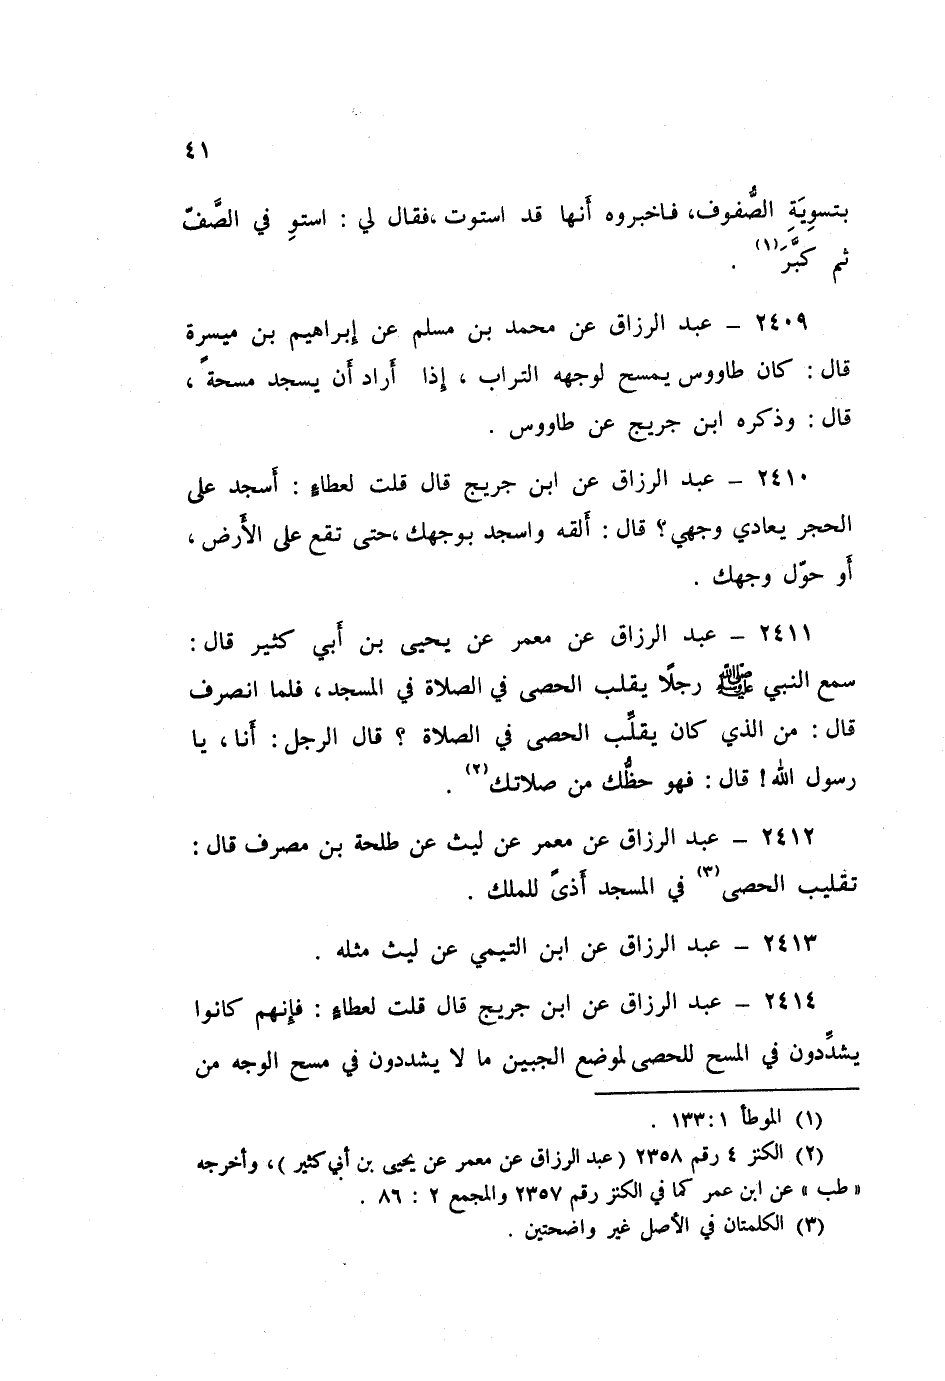 ٤١
بتسوِيَةِ الصُّفوف، فاخبروه أَنها قد استوت ،فقال لي : استوِ في الصَّفّ
ثم كبَّرَ(١) .
٢٤٠٩ – عبد الرزاق عن محمد بن مسلم عن إبراهيم بن ميسرة
قال : كان طاووس يمسح لوجهه التراب ، إذا أَراد أَن يسجد مسحةً ،
قال : وذكره ابن جريج عن طاووس .
٢٤١٠ – عبد الرزاق عن ابن جريج قال قلت لعطاءٍ : أَسجد على
الحجر يعادي وجهي؟ قال : أَلقه واسجد بوجهك ،حتى تقع على الأَرض ،
أَو حوّل وجهك .
٢٤١١ – عبد الرزاق عن معمر عن يحيى بن أَبي كثير قال :
سمع النبي ﷺ رجلًا يقلب الحصى في الصلاة في المسجد ، فلما انصرف
قال : من الذي كان يقلِّب الحصى في الصلاة ؟ قال الرجل : أَنا ، يا
رسول الله! قال : فهو حظُّك من صلاتك(٢) .
٢٤١٢ – عبد الرزاق عن معمر عن ليث عن طلحة بن مصرف قال :
تقليب الحصى(٣) في المسجد أَذىً للملك .
٢٤١٣ – عبد الرزاق عن ابن التيمي عن ليث مثله .
٢٤١٤ – عبد الرزاق عن ابن جريج قال قلت لعطاءٍ : فإنهم كانوا
يشدِّدون في المسح للحصى لموضع الجبين ما لا يشددون في مسح الوجه من
(١) الموطأ ١ :١٣٣ .
(٢) الكنز ٤ رقم ٢٣٥٨ ( عبد الرزاق عن معمر عن يحيى بن أبي كثير )، وأخرجه
« طب » عن ابن عمر كما في الكنز رقم ٢٣٥٧ والمجمع ٢ : ٨٦ .
(٣) الكلمتان في الأصل غير واضحتين .